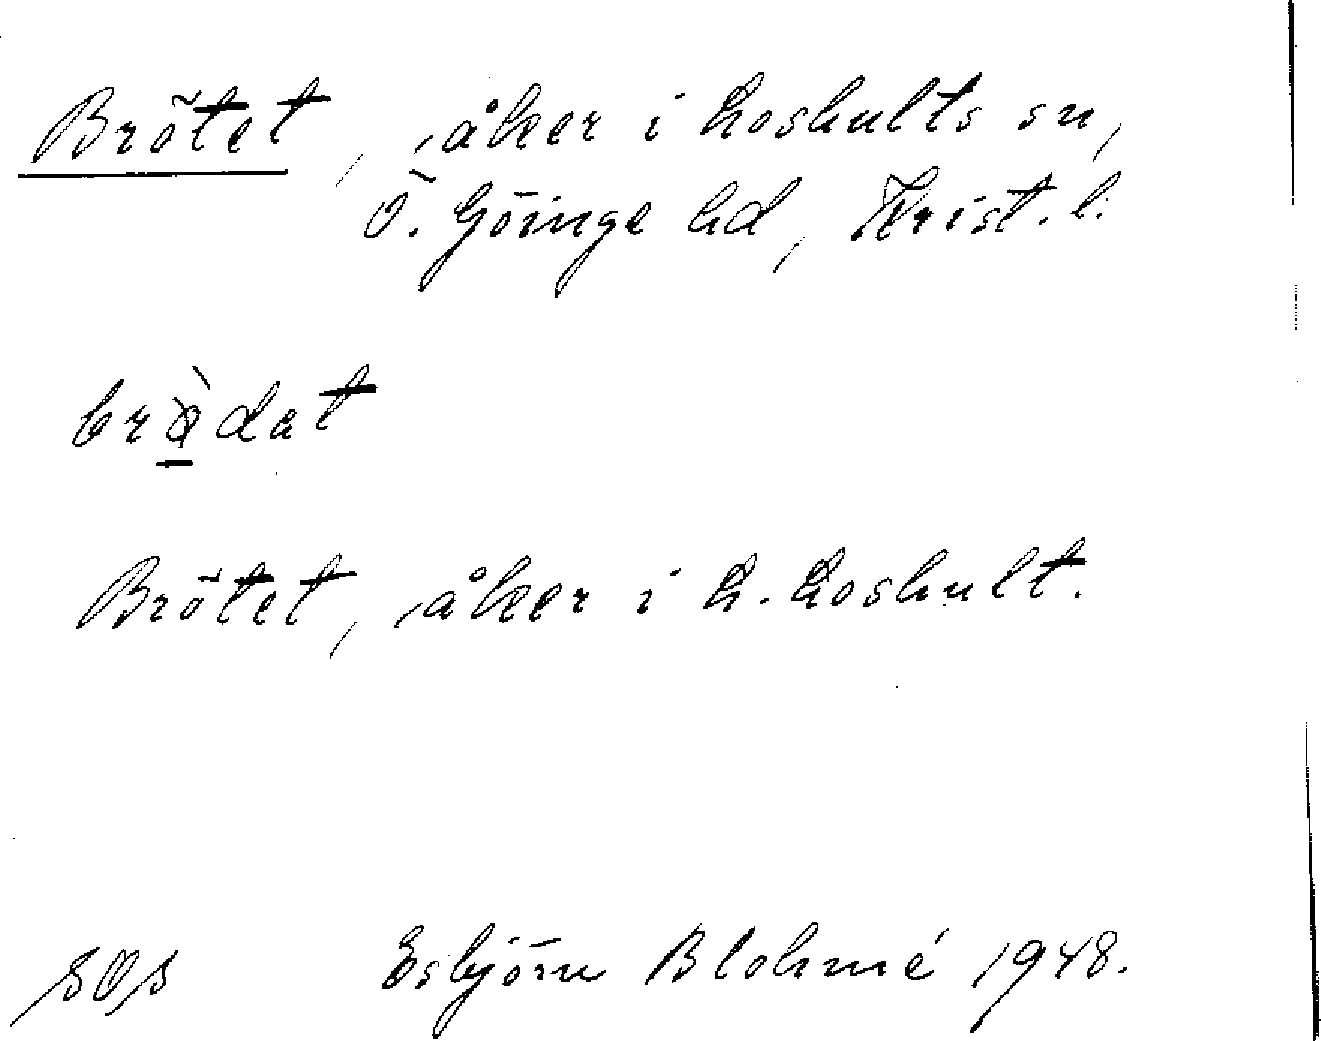 Brötet, åker i Loshults sn,
Ö. Göinge hd, Krist. l.
brø̀dat
Brötet, åker i L. Loshult.
SOS Esbjörn Blohmé 1948.